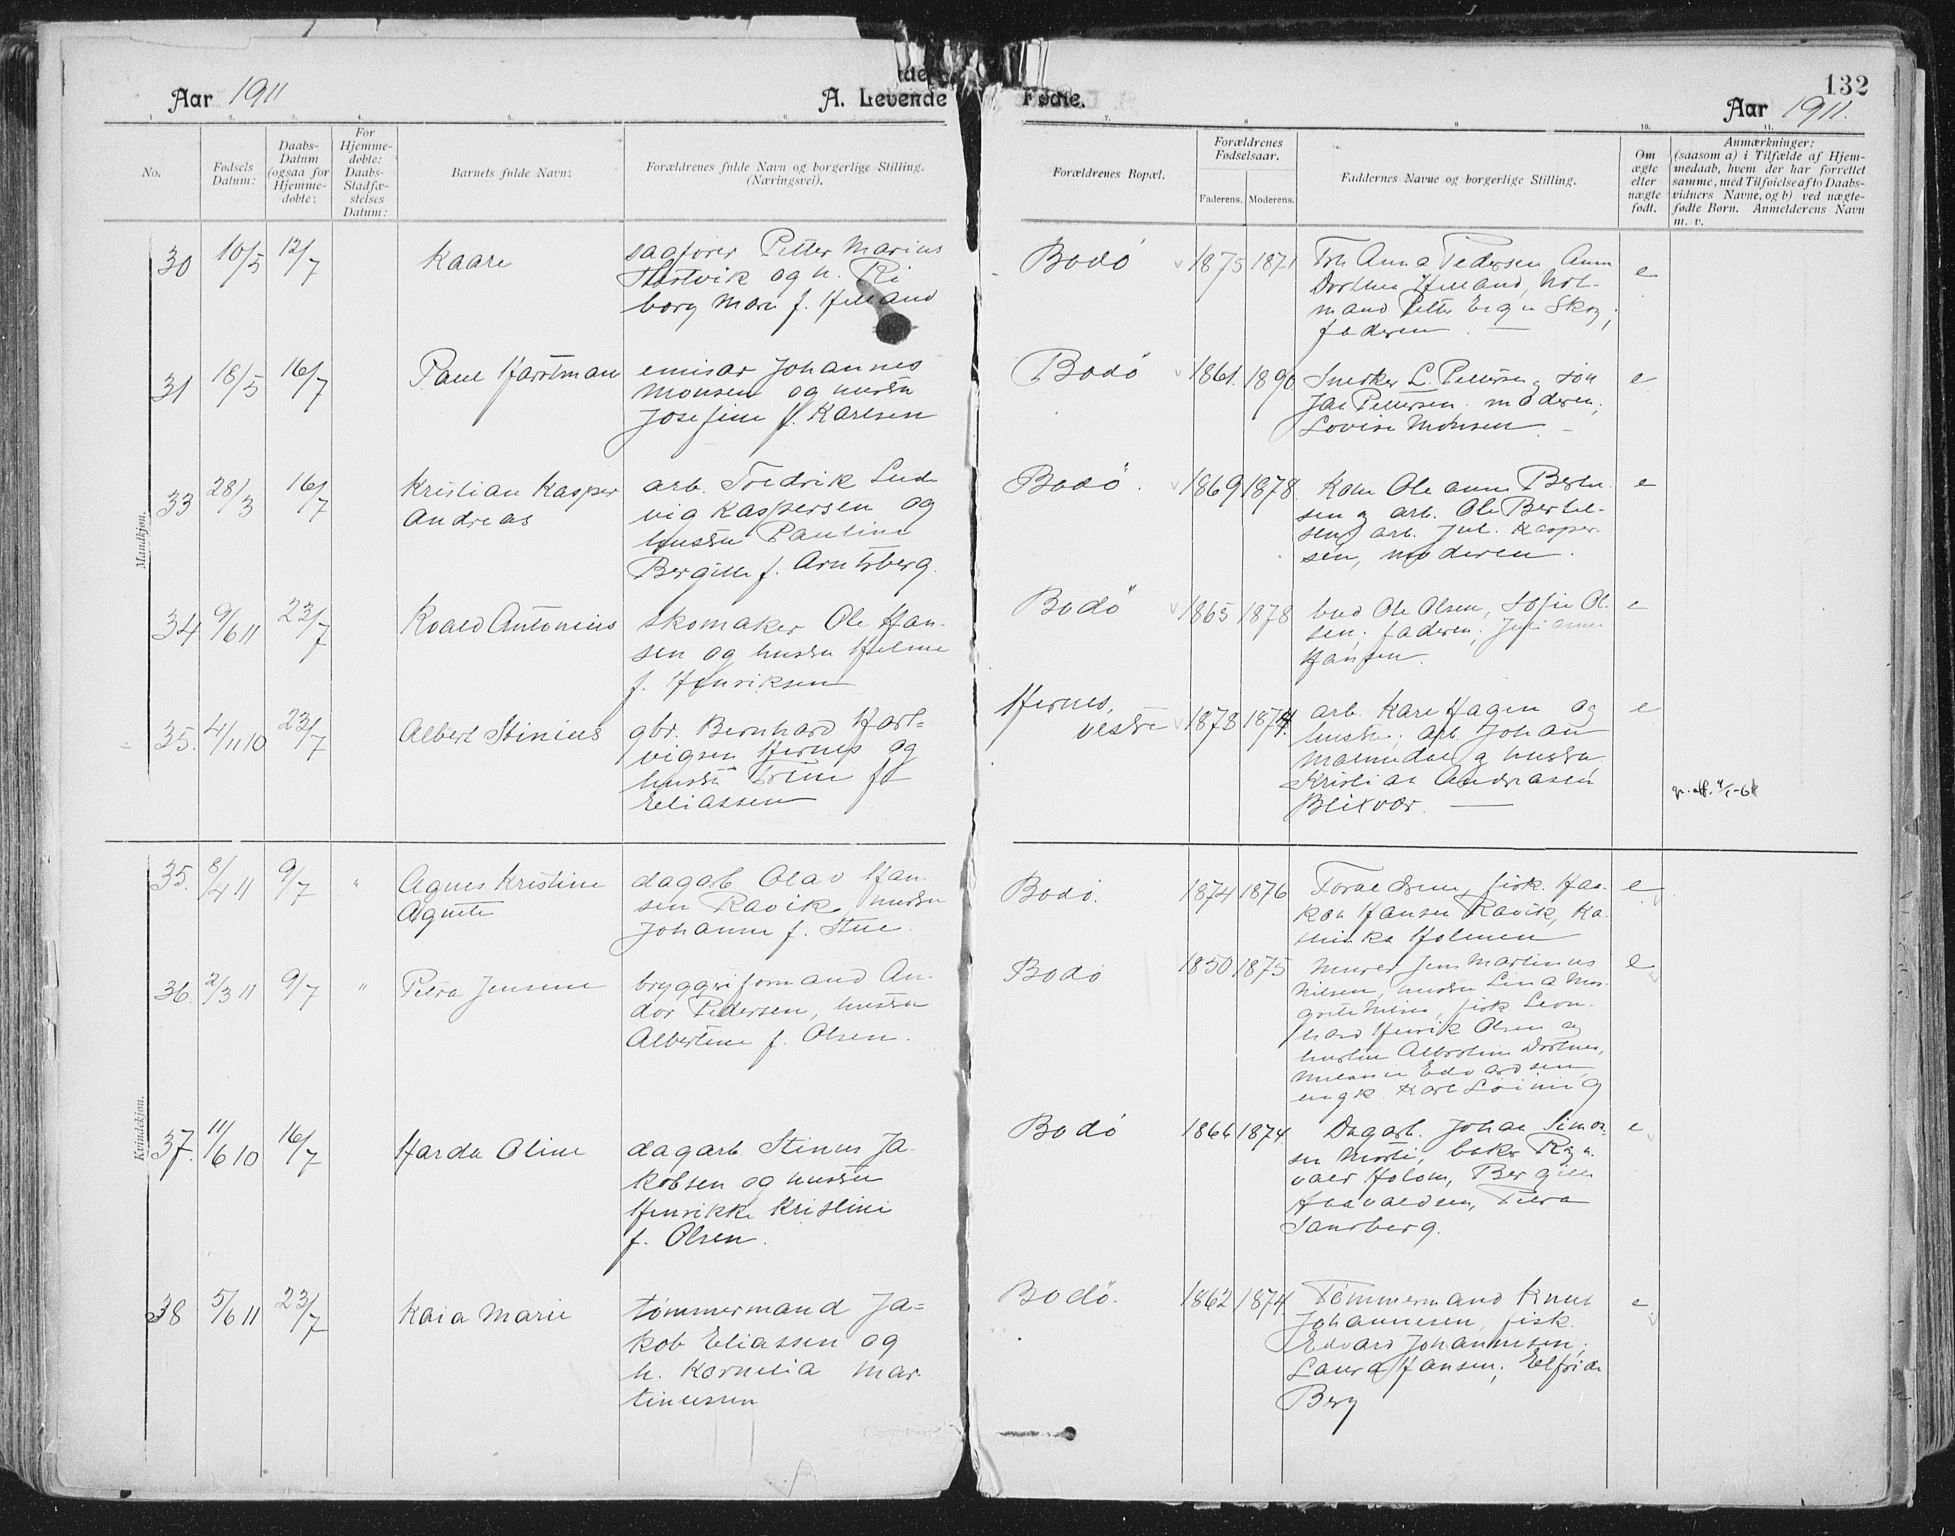 132
Aar 1911
A. Levende
Fødte.
Aar 1911.
1. 2. 3. 4. 5. 6. 7. 8. 9. 10. 11.
No.
Fødsels Datum:
Daabs-
Datum
(ogsaa for
Hjemme-
døbte:
For
Hjemme-
døbte:
Daabs-
Stadfæ-
stelses
Datum:
Barnets fulde Navn:
Forældrenes fulde Navn og borgerlige Stilling.
(Næringsvei).
Forældrenes Bopæl.
Forældrenes
Fødselsaar.
Faderens. Moderens.
Faddernes Navne og borgerlige Stilling.
Om
ægte
eller
uægte
født.
Anmærkninger:
(saasom a) i Tilfælde af Hjem-
medaab, hvem der har forrettet
samme, med Tilføielse af to Daabs-
vidners Navne, og b) ved uægte-
fødte Børn. Anmelderens Navn
m. v.
Mandkjøn.
30 10/5 12/7 Kaare
sagfører Petter Marius
og h.
borg Mari f.
Bodø 1875 1871
Anna Pedersen, Anna
Petter Skog;
faderen
e
31 18/5 16/7 Paul Hartman
emisær Johannes
Monsen og hustru
Josefine f. Karlsen
Bodø 1861. 1890
Snedker L. Pettersen,
Pettersen. moderen;
Lovise Monsen
e
33 28/3 16/7 Kristian Kasper
Andreas
arb. Fredrik Lud-
vig Kaspersen og
hustru Pauline
Bergitte f. Arntsberg.
Bodø. 1869 1878.
Kone Oleanna Bertel
sen og arb. Ole Bertel-
sen, arb. Jul. Kasper-
sen, moderen.
e
34 9/6 11 23/7 Roald Antonius
Skomaker Ole Han-
sen og hustru
f. Henriksen
Bodø 1865 1878
bud Ole Olsen, Sofie Ol-
sen; faderen;
Hansen.
e
35. 4/11 10 23/7 Albert Stinius
gbr. Bernhard Hart-
vigsen Hernes og
hustru Trine f.
Eliassen
Hernes,
vestre 1873 1874.
arb. Karl Hagen og
hustru; arb. Johan
og hustru
Kristian Andreasen
Blixvær.
e
Kvindekjøn.
35. 8/4 11 9/7 " Agnes Kristine
Agnete
dagarb. Olav Han-
sen Ravik, hustru
Johanne f. Stue.
Bodø. 1874 1876
Forældrene, fisk. Haa-
kon Hansen Ravik, Ka-
Holmen
e
36. 2/3 11 9/7 " Petra Jensine
bryggeriformand An-
dor Pedersen, hustru
Albertine f. Olsen.
Bodø 1850 1875
Murer Jens Martinus
Nilsen, hustru Lina Mar-
grete Nilsen, fisk. Leon-
hard Henrik Olsen og
hustru
Edvardsen
Karl
e
37. 11/6 10 16/7 Harda Oline
dagarb. Stinus Ja-
kobsen og hustru
Henrikke Kristine
f. Olsen.
Bodø 1866 1874.
Dagarb. Johan Simon-
sen baker Rag n-
vald Holom, Bergitte
Aavaldsen, Petra
Sandberg.
e
38 5/6 11 23/7 Kaia Marie
tømmermand Ja-
kob Eliassen og
h. Kornelia Mar-
tinussen
Bodø. 1862 1874
Tømmermand Knut
Johannesen, fisk.
Edvard Johannesen;
Laura Hansen; Elfrida
Berg
e